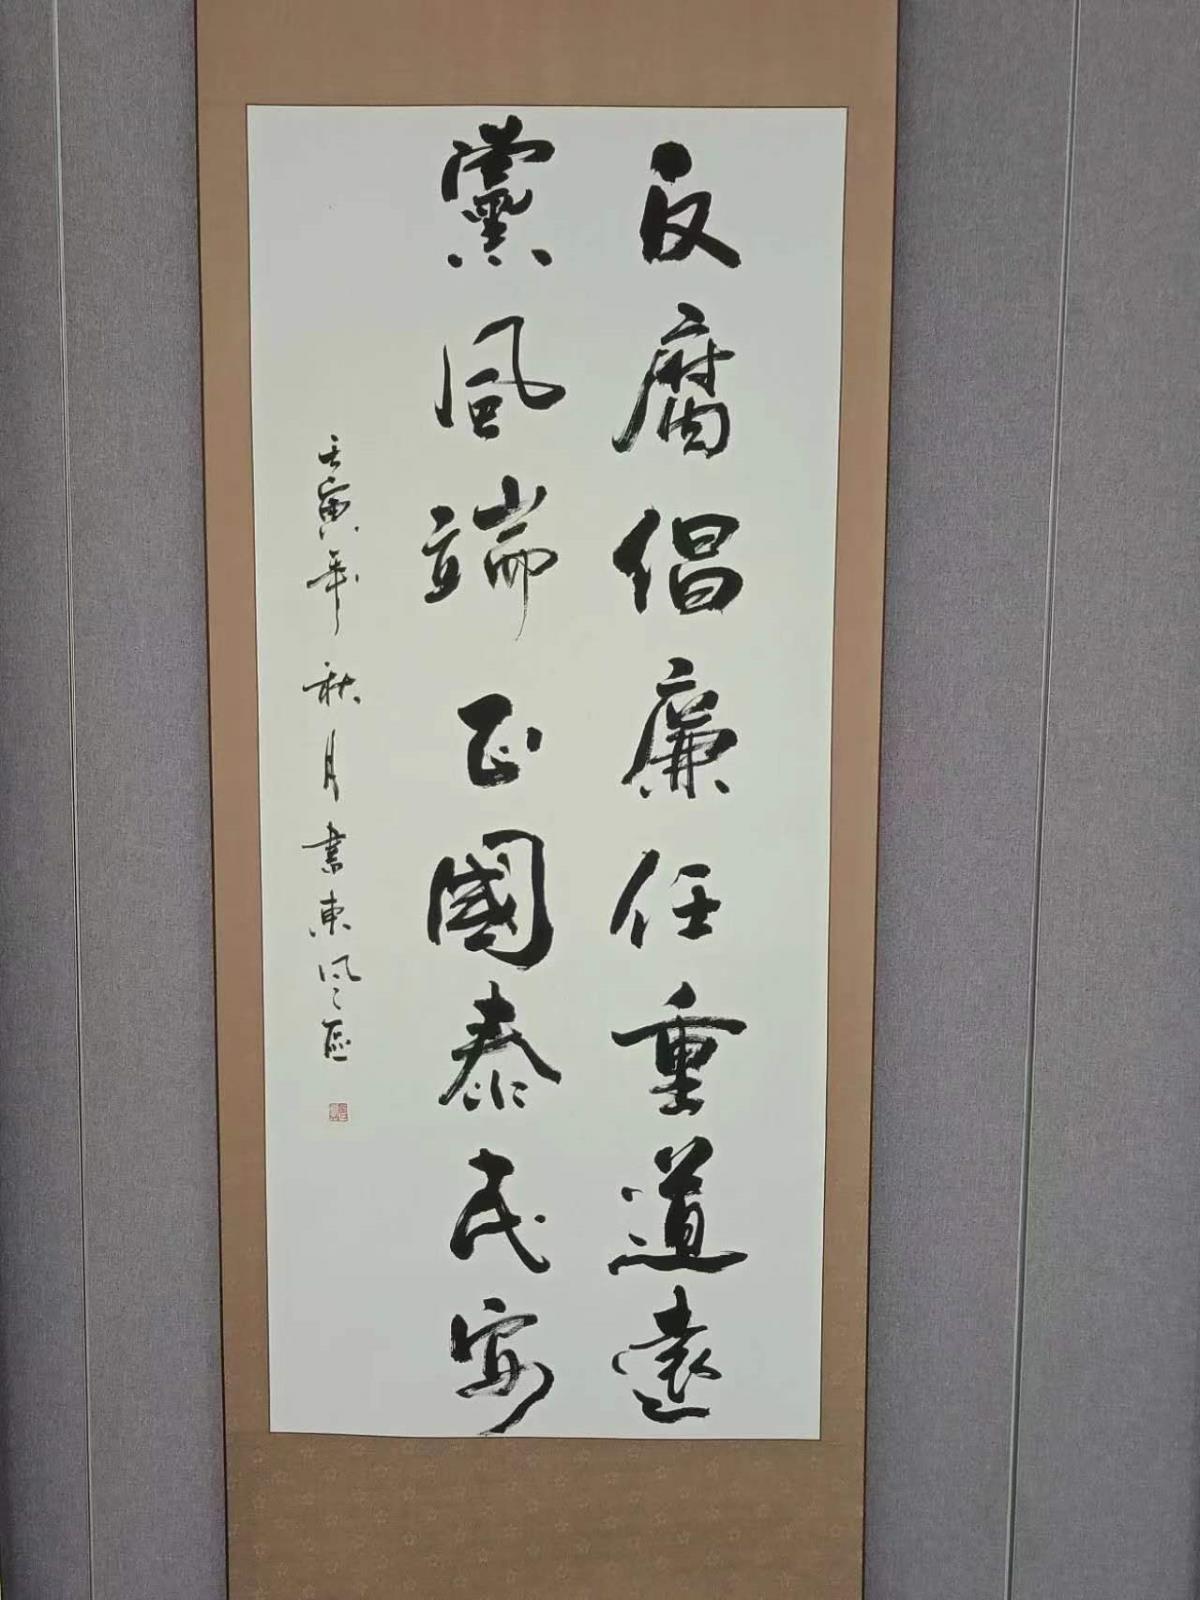 反腐倡廉任重道遠
黨風端正國泰民安
壬寅年秋月書東風